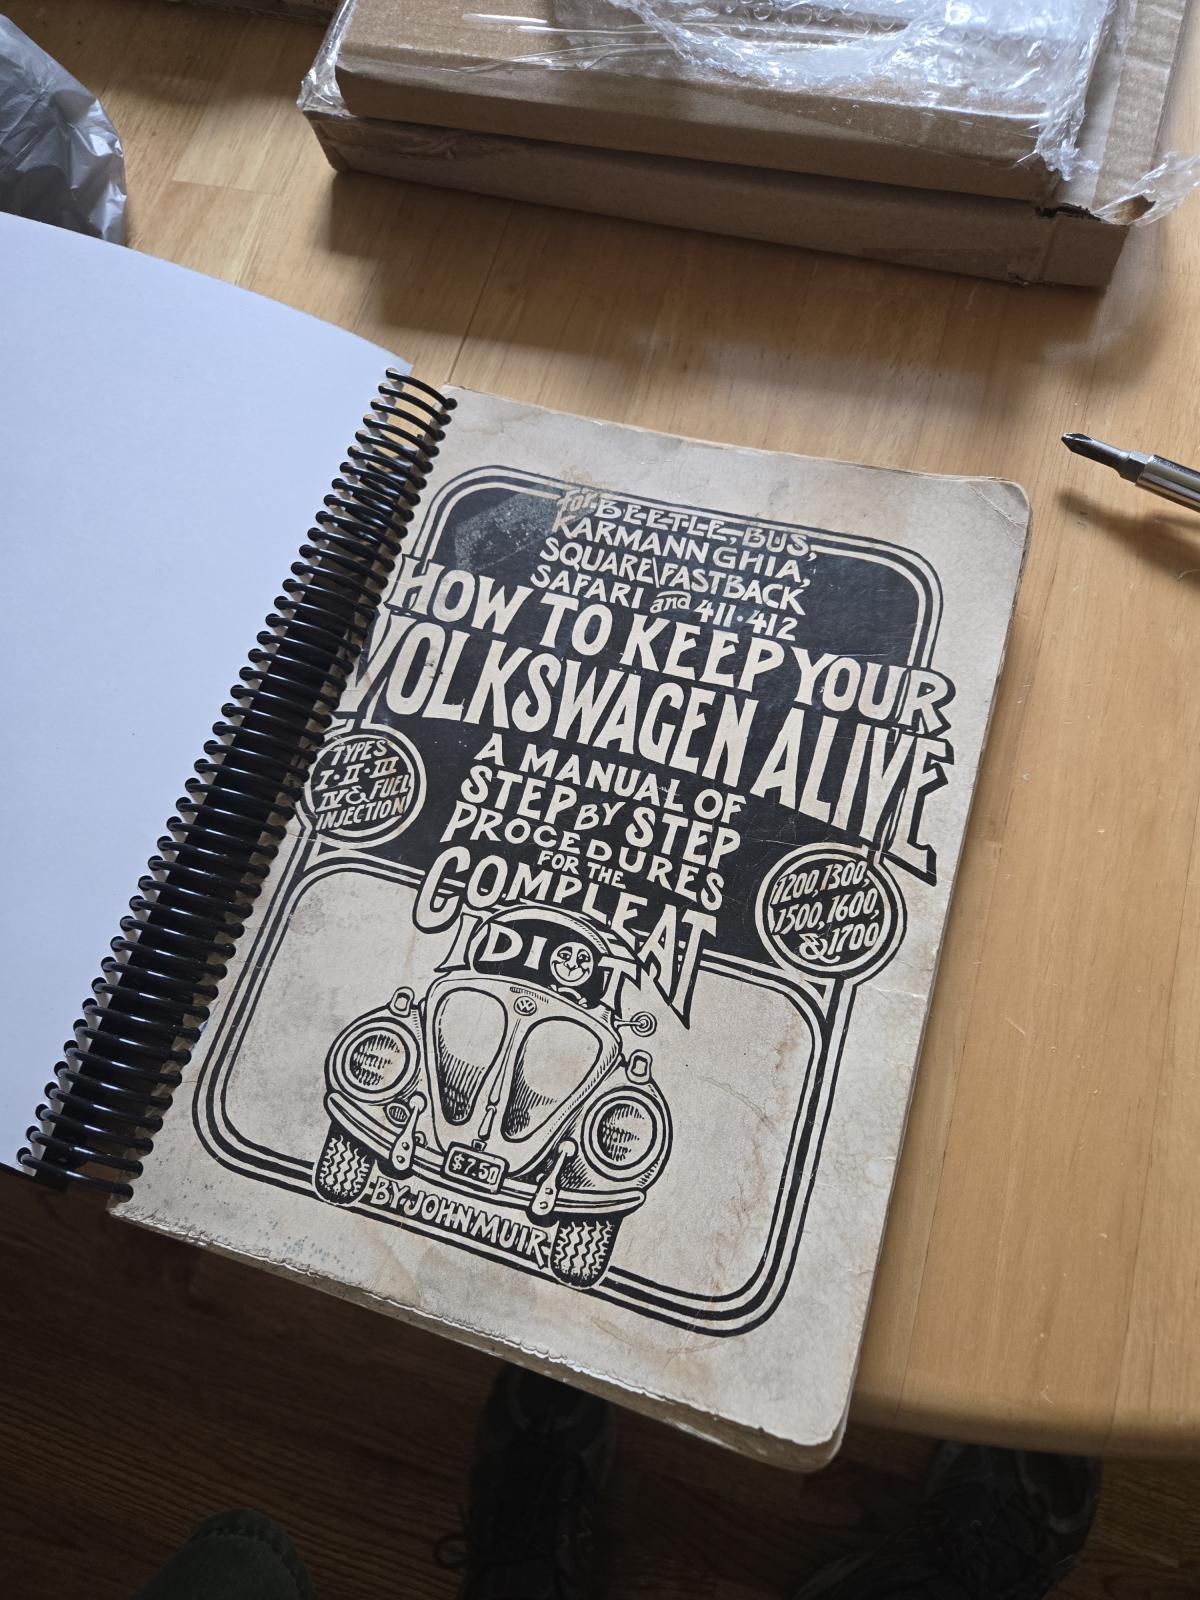 for BEETLE, BUS,
KARMANN GHIA,
SQUARE\FASTBACK
SAFARI and 411·412
HOW TO KEEP YOUR
VOLKSWAGEN ALIVE
A MANUAL OF
STEP BY STEP
PROCEDURES
FOR THE
COMPLEAT
IDIOT
TYPES
I·II·III
IV & FUEL
INJECTION
1200, 1300,
1500, 1600,
& 1700
$7.50
BY JOHN MUIR